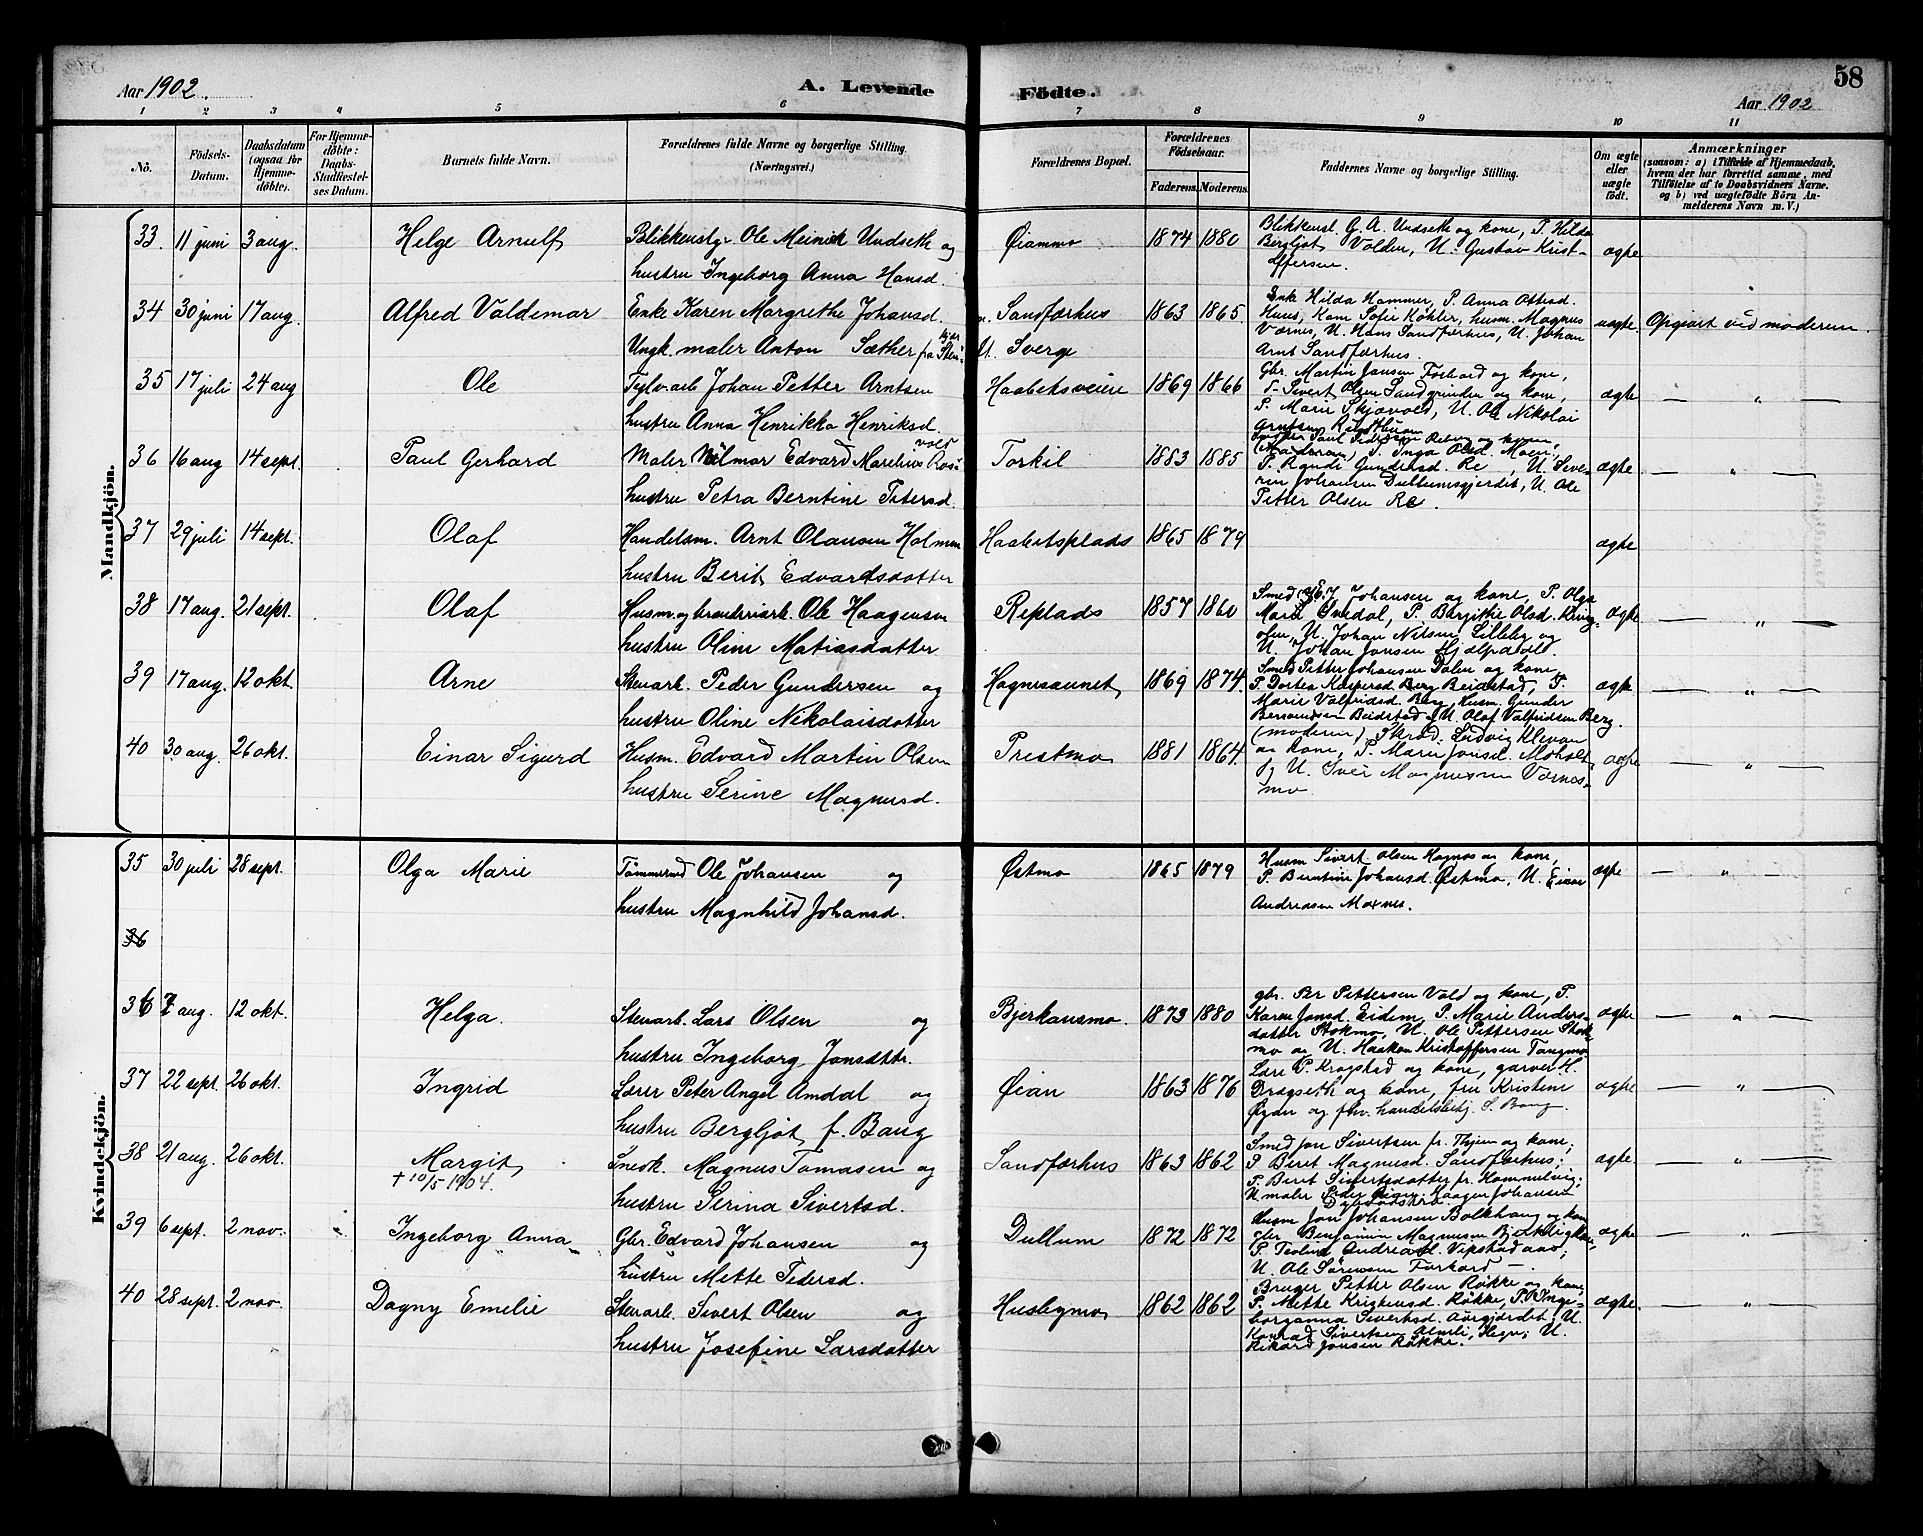 Aar 1902. A. Levende
Födte. Aar 1902 58
1 2 3 4 5 6 7 8 9 10 11
No. Födsels-Datum. Daabsdatum (ogsaa for Hjemmedöbte). For Hjemmedöbte: Daabs-Stadfæstelses Datum. Barnets fulde Navn. Forældrenes fulde Navne og borgerlige Stilling. (Næringsvei.)
Forældrenes Bopæl. Forældrenes Födselsaar. Faderens. Moderens. Faddernes Navne og borgerlige Stilling. Om ægte eller uægte födt. Anmærkninger (saasom: a) i Tilfælde af Hjemmedaab, hvem der har forrettet samme, med Tilföielse af to Daabsvidners Navne, og b) ved uægtefödte Börn Anmelderens Navn m. V.)
Mandkjön.
33. 11 juni 3 aug. Helge Arnulf Blikkenslgr Ole Meinick Undseth og
hustru Ingeborg Anna Hansd.
Øiammo 1874 1880 Blikkensl. G. A. Undseth og kone, P. Hilda
Bergljot Volden, U. Gustav Krist-
offersen. ægte
34 30 juni 17 aug. Alfred Valdemar Enke Karen Margrethe Johansd.
Ungk. maler Anton Sæther fra Sten-
kjær
Sandfærhus 1863 1865.
U. Sverge
Enke Hilda Hammer, P. Anna Ottesd.
Huus, Kam Sofie Køhler, husm. Magnus
Værnes, U. Hans Sandfærhus, U. Johan
Arnt Sandfærhus. uægte Opgivet ved moderen.
35 17 juli 24 aug Ole Teglv.arb Johan Petter Arntsen
hustru Anna Henrikka Henriksd.
Haabetsveien 1869 1866 Gbr. Martin Jansen Forbord og kone,
Sivert Olsen Sandgrinden og kone,
P. Marie Skjævold, U. Ole Nikolai
Arntsen ægte — „ —
36 16 aug 14 sept. Paul Gerhard Maler Hilmar Edvard Marelius Ros-
vold
hustru Petra Berntine Petersd.
Torkil 1883 1885 Paul Pedersen og konen,
(Mordmoren), P. Inga Olsd. Moen,
P. Randi Gundersd. Re, U. Seve-
rin Johansen Dullumsgjerdet, U. Ole
Petter Olsen Re. ægte — „ —
37 29 juli 14 sept. Olaf Handelsm. Arnt Olausen Holmen
hustru Berit Edvardsdatter
Haabetsplads 1865 1879 ægte
38 17 aug. 21 sept. Olaf Husm. og branderiarb. Ole Haagensen
hustru Oline Matiasdatter
Replads 1857 1860 Smed E. J. Johansen og kone, P. Olga
Marie Snedal, P. Bergithe Olsd. Kring-
olen, U. Johan Nilsen Lilleby og
U. Johan Jonsen Hjælpdahl. ægte — „ —
39 17 aug. 12 okt. Arne Stenarb. Peder Gundersen og
hustru Oline Nikolaisdatter
Hognesaunet 1869 1874. Smed Petter Johansen Dalen og kone,
P. Dortea Kaspersd. Berg Beidstad, P.
Marie Valfridsd. Berg, Husm. Gunder
Berntsen Beidstad, U. Olaf Valfridsen Berg. ægte — „ —
40 30 aug. 26 okt. Einar Sigurd Husm. Edvard Martin Olsen
hustru Serine Magnusd.
Prestmo 1881 1864. (moderen) Skræd. Ludvig Klevan
og kone, P. Marie Jonsd. Moholt
og U. Iver Magnussen Værnes-
mo. ægte — „ —
Kvindekjön.
35 30 juli 28 sept. Olga Marie Tömmermd Ole Johansen og
hustru Magnhild Johansd.
Østmo 1865 1879 Husm Sivert Olsen Kognes og kone,
P. Berntine Johansd. Østmo, U. Einar
Andreasen Moxnes. ægte — „ —
36
36 7 aug. 12 okt. Helga. Stenarb. Lars Olsen og
hustru Ingeborg Jonsdtr.
Bjerkansmo. 1873 1880 gbr. Per Pettersen Vold og kone, P.
Karen Jonsd. Eidem, P. Marie Anders-
datter Stokmo, U. Ole Pettersen Stok-
mo og U. Haakon Kristoffersen Tangmo. ægte — „ —
37 22 sept. 26 okt. Ingrid Lærer Peter Angel Amdal og
hustru Bergljot f. Bang
Øian 1863 1876 Lære P. Krogstad og kone, garver H.
Dragseth og kone, fru Kristine
Øyan og fhv. handelsbetj. S. Bang. ægte — „ —
38 21 aug. 26 okt. Margit Snedk. Magnus Tomasen og
+ 10/5 1904. hustru Serina Sivertsd.
Sandfærhus 1863 1862 Smed Jon Sivertsen fr. Thjem og kone;
P Berit Magnusd. Sandfærhus;
P. Beret Sivertsdatter fr. Hommelvig;
U maler Peder Haagen Johansen ægte — „ —
39 6 sept. 2 nov. Ingeborg Anna Gbr. Edvard Johansen og
hustru Mette Pedersd.
Dullum 1872 1872 Husm Jon Johansen Bolkhaug og kone,
gbr. Benjamin Magnusen
P. Teoline Andreasd. Vipstadaas,
U. Ole Sørensen Forbord —. ægte — „ —
40 28 sept. 2 nov. Dagny Emelie Stenarb. Sivert Olsen og
hustru Josefine Larsdatter
Husbymo 1862 1862 Bruger Petter Olsen Røkke og kone,
P. Mette Kristensd. Røkke, P. Inge-
borganna Sivertsd. Avegjerdet, U.
Konrad Sivertsen Almli, Hegn; U.
Rikard Jonsen Røkke. ægte — „ —